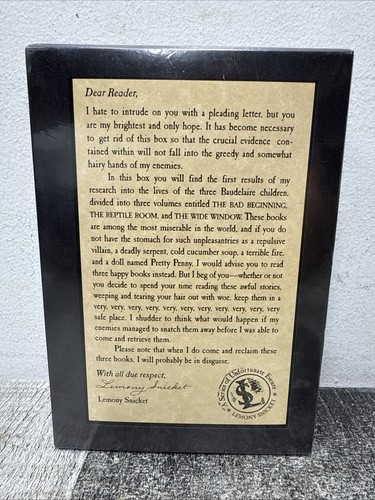 Dear Reader,
I hate to intrude on you with a pleading letter, but you
are my brightest and only hope. It has become necessary
to get rid of this box so that the crucial evidence con-
tained within will not fall into the greedy and somewhat
hairy hands of my enemies.
In this box you will find the first results of my
research into the lives of the three Baudelaire children,
divided into three volumes entitled THE BAD BEGINNING,
THE REPTILE ROOM, and THE WIDE WINDOW. These books
are among the most miserable in the world, and if you do
not have the stomach for such unpleasantries as a repulsive
villain, a deadly serpent, cold cucumber soup, a terrible fire,
and a doll named Pretty Penny, I would advise you to read
three happy books instead. But I beg of you—whether or not
you decide to spend your time reading these awful stories,
weeping and tearing your hair out with woe, keep them in a
very, very, very, very, very, very, very, very, very, very
safe place. I shudder to think what would happen if my
enemies managed to snatch them away before I was able to
come and retrieve them.
Please note that when I do come and reclaim these
three books, I will probably be in disguise.
With all due respect,
Lemony Snicket
Lemony Snicket
A Series of Unfortunate Events
LEMONY SNICKET